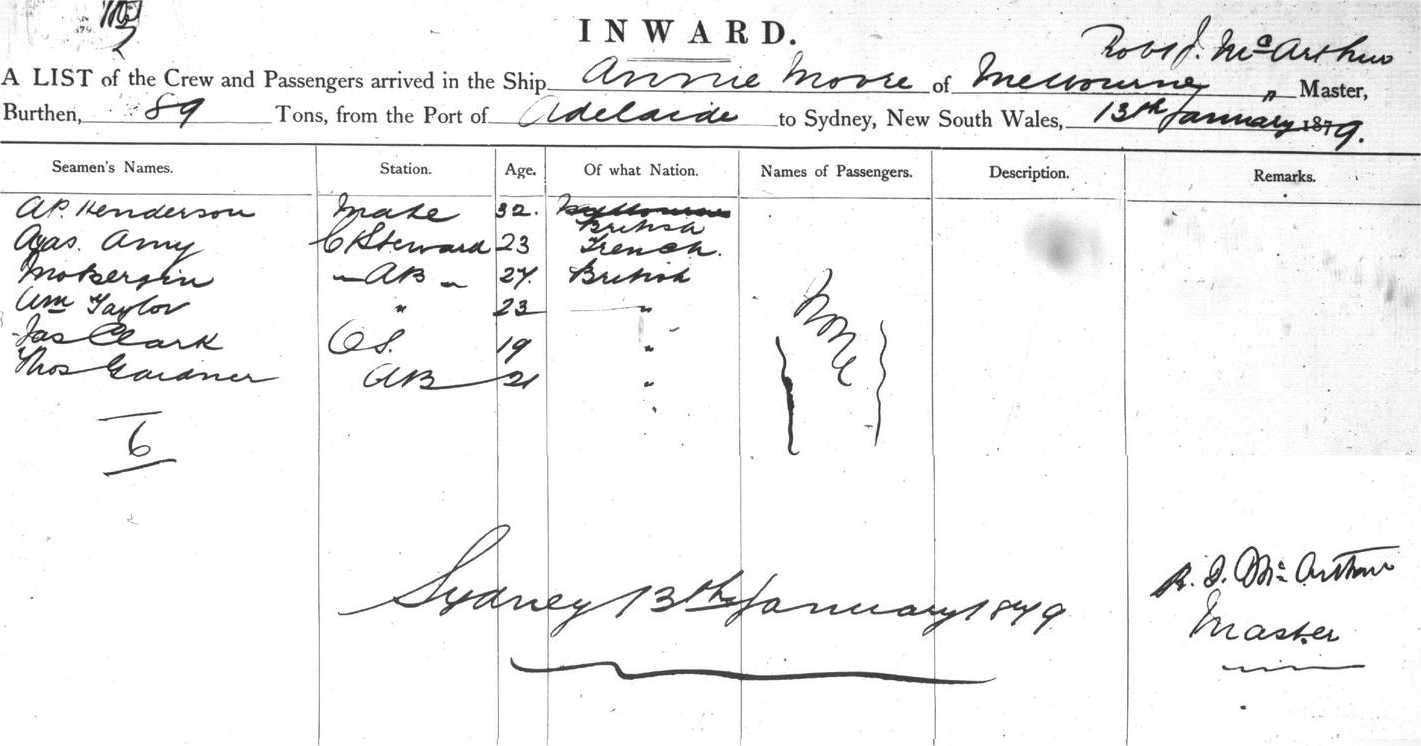 INWARD.
Robt J. McArthur
A LIST of the Crew and Passengers arrived in the Ship Annie Moore of Melbourne " Master,
Burthen, 89 Tons, from the Port of Adelaide to Sydney, New South Wales, 13th January 1879.
Seamen's Names. Station. Age. Of what Nation. Names of Passengers. Description. Remarks.
A.P. Henderson Mate 32.
British
Amy C & Steward 23 French.
AB 27 British
Wm Taylor " 23 "
Jas Clark OS. 19 "
Thos Gardner AB 21 "
None
6
Sydney 13th January 1879
R. J. McArthur
Master